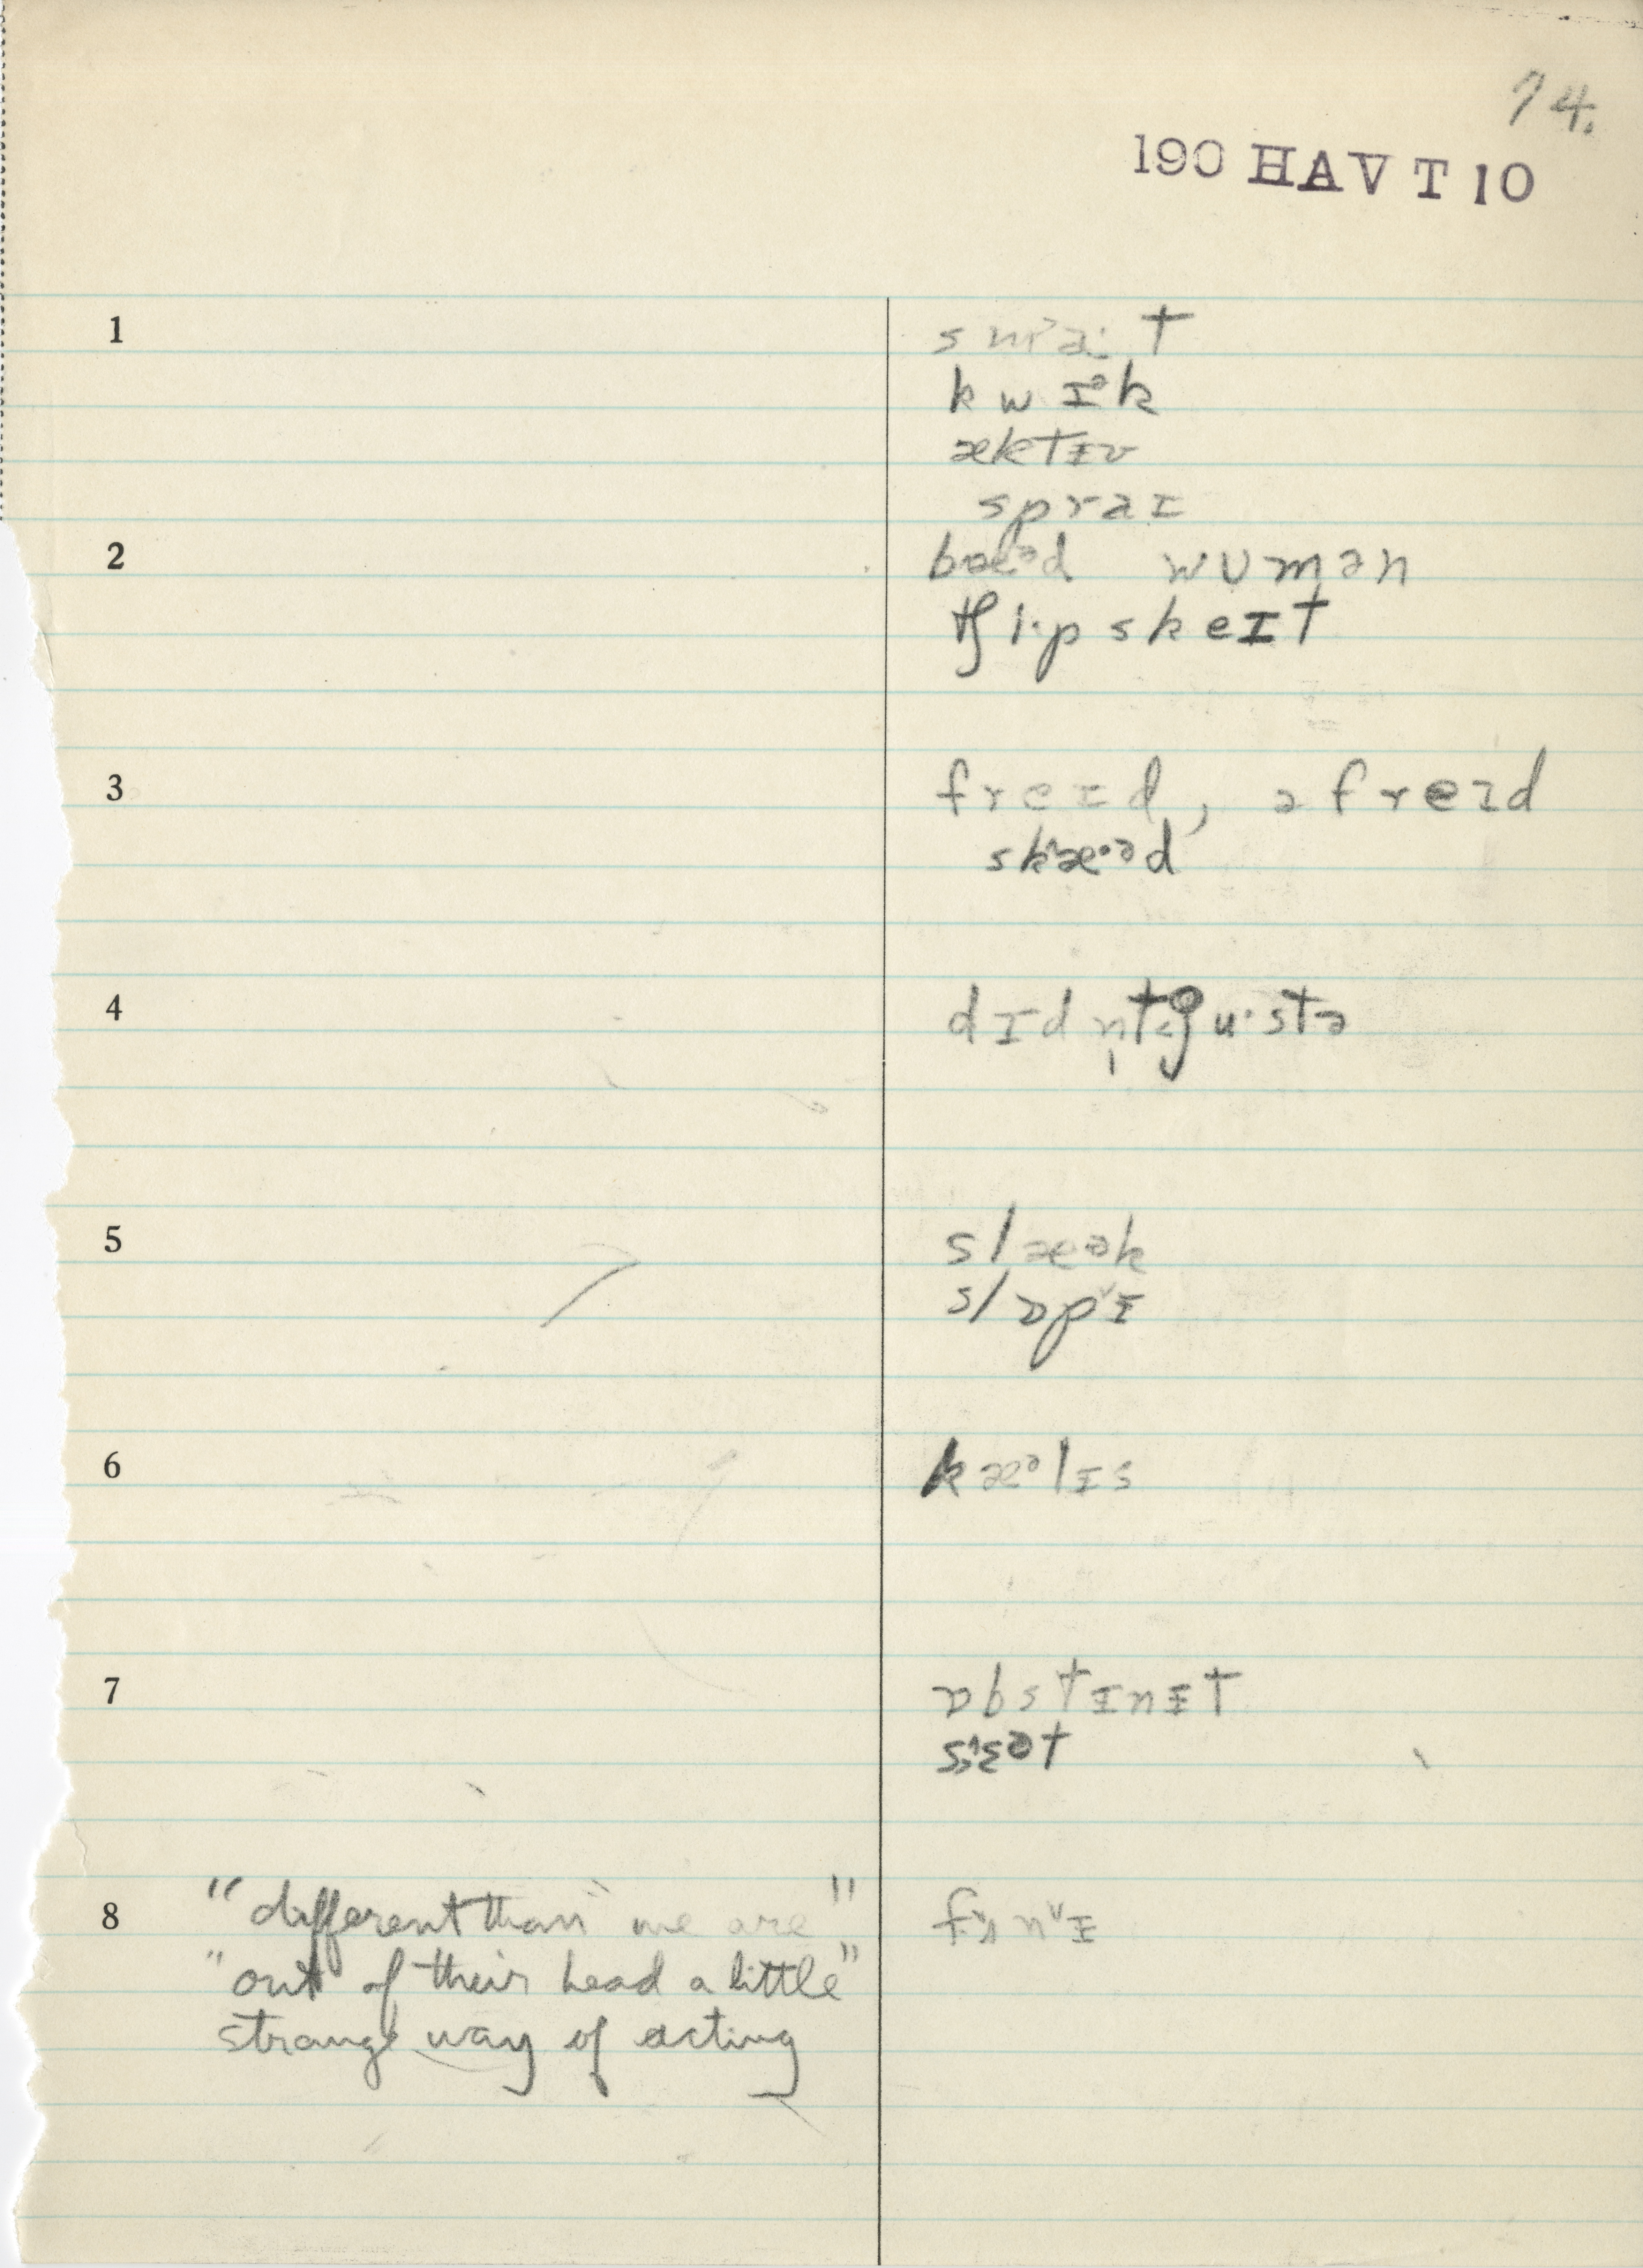 74.
190 HAV T 10
1 sma˃·t
kwɪᵊk
æktɪ̵v
spraɪ
2 bæᵊd wʊmən
tʃi·pskeɪt
3 freɪd, əfreɪd
sk˄æ·ᵊd
4 dɪdn̩t ju·stə
5 slæək
slɒp˅ɪ̵
6 kæᵊlɪ̵s
7 ɒbstɪ̵nɪ̵t
sɛ˄ət
8 "different than we are" f n˅ɪ̵
"out of their head a little"
strange way of acting